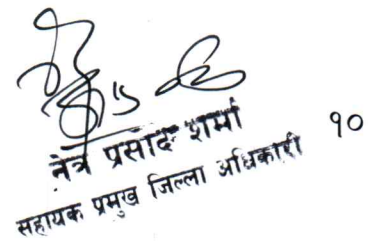 नेत्र प्रसाद शर्मा
सहायक प्रमुख जिल्ला अधिकारी
१०